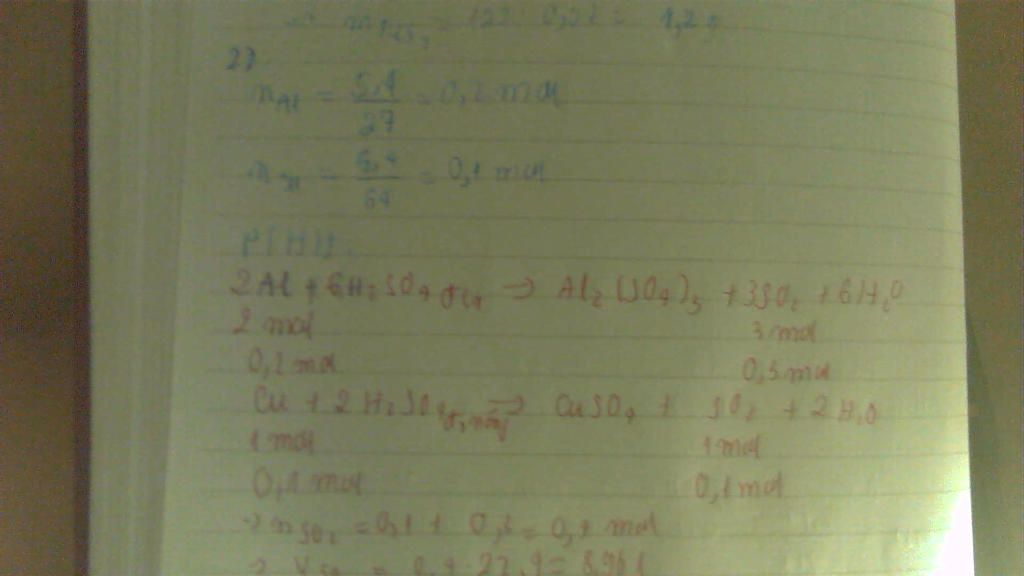 = 1,2 g
27.
n Al = 5,4 / 27 = 0,2 mol
= 6,4 / 64 = 0,1 mol
PTHH:
2Al + 6H₂SO₄ → Al₂(SO₄)₃ + 3SO₂ + 6H₂O
2 mol 3 mol
0,2 mol 0,3 mol
Cu + 2H₂SO₄ đ, nóng → CuSO₄ + SO₂ + 2H₂O
1 mol 1 mol
0,1 mol 0,1 mol
→ n SO₂ = 0,1 + 0,3 = 0,4 mol
= 0,4 . 22,4 = 8,96 l